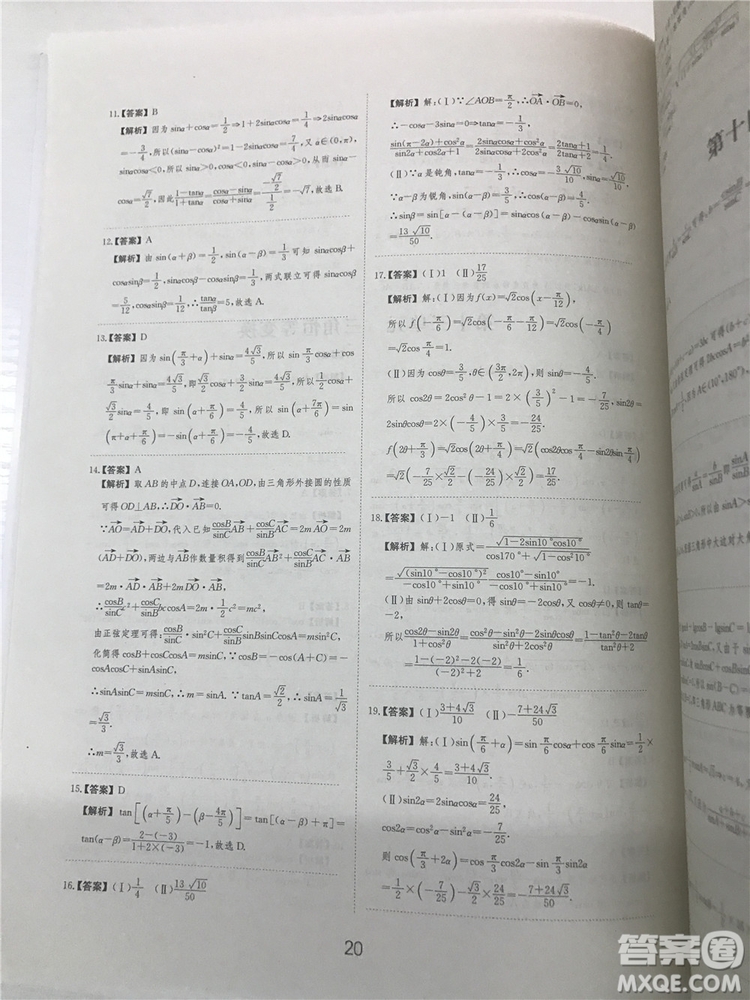 11.【答案】B
【解析】因为 sinα+cosα=1/2⇒1+2sinαcosα=1/4⇒2sinαcosα
=-3/4,所以(sinα-cosα)²=1-2sinαcosα=7/4.又因为α∈(0,π),
sinαcosα<0,所以 sinα>0,cosα<0,所以 sinα-cosα>0,从而 sinα-
cosα=√7/2,因此(1-tanα)/(1+tanα)=(cosα-sinα)/(cosα+sinα)=(-√7/2)/(1/2)=-√7,故选 B.
12.【答案】A
【解析】由 sin(α+β)=1/2,sin(α-β)=1/3可知 sinαcosβ+
cosαsinβ=1/2,sinαcosβ-cosαsinβ=1/3,两式联立可得 sinαcosβ=
5/12,cosαsinβ=1/12,∴tanα/tanβ=5,故选 A.
13.【答案】D
【解析】因为 sin(π/3+α)+sinα=4√3/5,所以 sin π/3 cosα+cos
π/3 sinα+sinα=4√3/5,即 √3/2 cosα+3/2 sinα=4√3/5,所以 1/2 cosα+
√3/2 sinα=4/5,即 sin(α+π/6)=4/5,所以 sin(α+7π/6)=sin
(π+α+π/6)=-sin(α+π/6)=-4/5.故选 D.
14.【答案】A
【解析】取 AB 的中点 D,连接 OA,OD,由三角形外接圆的性质
可得 OD⊥AB,∴DO·AB=0.
∵AO=AD+DO,代入已知 cosB/sinC AB+cosC/sinB AC=2mAO=2m
(AD+DO),两边与AB作数量积得到 cosB/sinC AB·AB+cosC/sinB AC·AB
=2mAD·AB+2mDO·AB,
∴cosB/sinC·c²+cosC/sinB bccosA=2m·1/2c²=mc².
由正弦定理可得:cosB/sinC·sin²C+cosC/sinB sinBsinCcosA=msin²C,
化简得 cosB+cosCcosA=msinC,∵cosB=-cos(A+C)=
-cosAcosC+sinAsinC,
∴sinAsinC=msinC,∴m=sinA.∵tanA=√2/2,∴sinA=1/√3
=√3/3.
∴m=√3/3,故选 A.
15.【答案】D
【解析】tan[(α+π/5)-(β-4π/5)]=tan[(α-β)+π]=
tan(α-β)=(2-(-3))/(1+2×(-3))=-1,故选 D.
16.【答案】(Ⅰ)1/4 (Ⅱ)13√10/50
【解析】解:(Ⅰ)∵∠AOB=π/2,∴OA·OB=0,
∴-cosα-3sinα=0⇒tanα=-1/3,
(sin(π-2α)+cos²α)/(sin2α+cos2α+1)=(2sinαcosα+cos²α)/(2sinαcosα+2cos²α)=(2tanα+1)/(2tanα+2)=1/4.
(Ⅱ)∵α是钝角,tanα=-1/3,∴cosα=-3/√10,sinα=1/√10,
∵β为锐角,sin(α-β)=3/5,∴cos(α-β)=4/5.
∴sinβ=sin[α-(α-β)]=sinαcos(α-β)-cosαsin(α-β)=
13√10/50.
17.【答案】(Ⅰ)1 (Ⅱ)17/25
【解析】解:(Ⅰ)因为 f(x)=√2cos(x-π/12),
所以 f(-π/6)=√2cos(-π/6-π/12)=√2cos(-π/4)
=√2cos π/4=1.
(Ⅱ)因为 cosθ=3/5,θ∈(3π/2,2π),则 sinθ=-4/5.
所以 cos2θ=2cos²θ-1=2×(3/5)²-1=-7/25,sin2θ=
2sinθcosθ=2×(-4/5)×3/5=-24/25.
f(2θ+π/3)=√2cos(2θ+π/4)=√2(cos2θcos π/4-sin2θsin π/4)
=√2(-7/25×√2/2+24/25×√2/2)=17/25.
18.【答案】(Ⅰ)-1 (Ⅱ)1/6
【解析】解:(Ⅰ)原式=√(1-2sin10°cos10°)/(cos170°+√(1-cos²10°))=
√(sin10°-cos10°)²/(sin10°-cos10°)=(cos10°-sin10°)/(sin10°-cos10°)=-1.
(Ⅱ)由 sinθ+2cosθ=0,得 sinθ=-2cosθ,又 cosθ≠0,则 tanθ=
-2,
所以(cos2θ-sin2θ)/(1+cos²θ)=(cos²θ-sin²θ-2sinθcosθ)/(sin²θ+2cos²θ)=(1-tan²θ-2tanθ)/(tan²θ+2)
=(1-(-2)²-2(-2))/((-2)²+2)=1/6.
19.【答案】(Ⅰ)(3+4√3)/10 (Ⅱ)-(7+24√3)/50
【解析】解:(Ⅰ)sin(π/6+α)=sin π/6 cosα+cos π/6 sinα=1/2×
3/5+√3/2×4/5=(3+4√3)/10.
(Ⅱ)sin2α=2sinαcosα=24/25,
cos2α=cos²α-sin²α=-7/25.
则 cos(π/3+2α)=cos π/3 cos2α-sin π/3 sin2α
=1/2×(-7/25)-√3/2×24/25=-(7+24√3)/50.
20
第十
答案圈
MXQE.COM